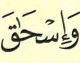 وَإِسْحَاقَ